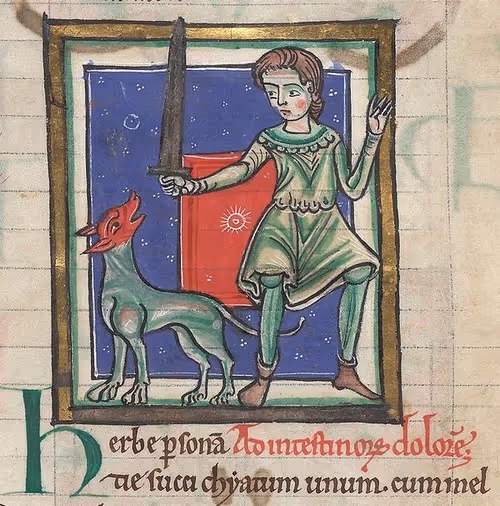 herbe ꝑsoná Ad intestinoꝝ dolorē;
tie succi chyatum unum. cum mel